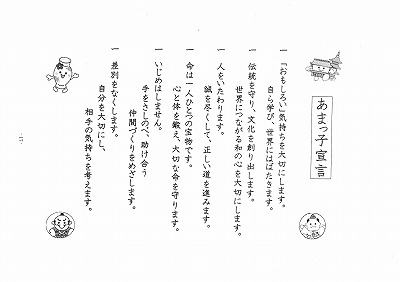 あまっ子宣言
一 「おもしろい」気持ちを大切にします。
自ら学び、世界にはばたきます。
一 伝統を守り、文化を創り出します。
世界につながる和の心を大切にします。
一 人をいたわります。
誠を尽くして、正しい道を進みます。
一 命は一人ひとつの宝物です。
心と体を鍛え、大切な命を守ります。
一 いじめはしません。
手をさしのべ、助け合う
仲間づくりをめざします。
一 差別をなくします。
自分を大切にし、
相手の気持ちを考えます。